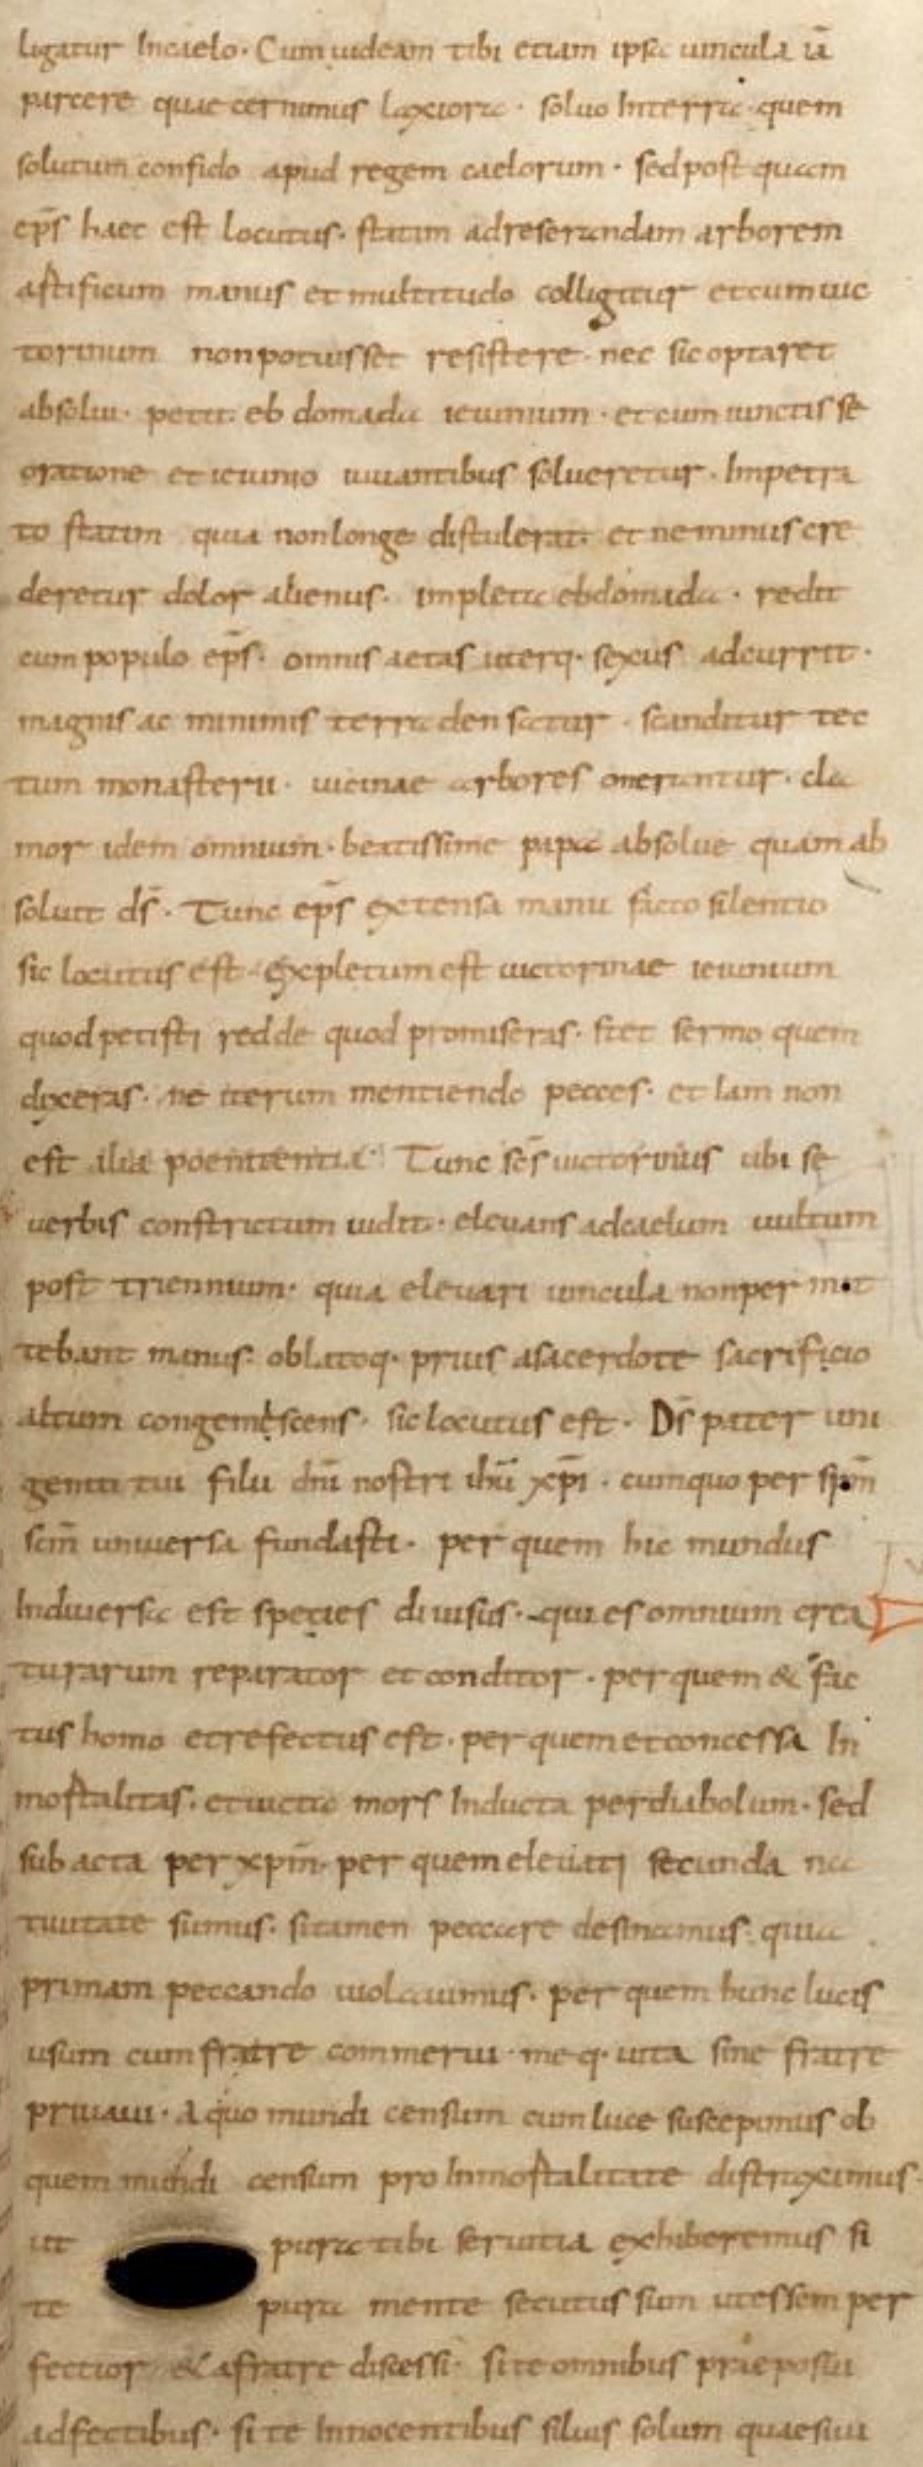 ligatur Incaelo. Cum uideam tibi etiam ipsa uincula iā
parcere quae cernimus laxiora. soluo Interra quem
solutum confido apud regem caelorum. sed post quam
ep̄s haec est locutus. statim adreserandam arborem
astificum manus et multitudo colligitur et cum uic
torinum non potuisset resistere. nec sic optaret
absolui. petit. eb domada ieiunium. et cum iunctis se
oratione et ieiunio iuuantibus solueretur. Impetra
to statim quia non longe distulerat. et ne minus cre
deretur dolor alienus. impleta ebdomada. redit
cum populo ep̄s. omnis aetas uterq. sexus adcurrit.
magnis ac minimis terra den satur. scanditur tec
tum monasterii. uicinae arbores onerantur. cla
mor idem omnium. beatissime papa absolue quam ab
soluit d̄s. Tunc ep̄s extensa manu facto silentio
sic locutus est. expletum est uictorinae ieiunium
quod petisti redde quod promiseras. stet sermo quem
dixeras. ne iterum mentiendo pecces. et Iam non
est alia poenitentia. Tunc sc̄s uictorinus ubi se
uerbis constrictum uidit. eleuans adcaelum uultum
post triennium. quia eleuari uincula non per mit
tebant manus. oblatoq. prius asacerdote sacrificio
altum congemescens. sic locutus est. D̄s pater uni
geniti tui filii dn̄i nostri ihū xp̄i. cum quo per sp̄m
sc̄m uniuersa fundasti. per quem hic mundus
Indiuersa est species diuisus. qui es omnium crea
turarum reparator et conditor. per quem & fac
tus homo et refectus est. per quem et concessa In
mostalitas. et uicta mors Inducta per diabolum. sed
sub acta per xp̄m. per quem eleuati secunda na
tiuitate sumus. si tamen peccare desinamus. quia
primam peccando uiolauimus. per quem hunc lucis
usum cum fratre commerui. me q. uita sine fratre
priuaui. A quo mundi censum cum luce suscepimus ob
quem mundi censum pro Inmostalitate distraximus
ut pura tibi seruitia exhiberemus si
te pura mente secutus sum ut essem per
fectior & afratre discessi. si te omnibus praeposui
adfectibus. si te Innocentibus siluis solum quaesiui